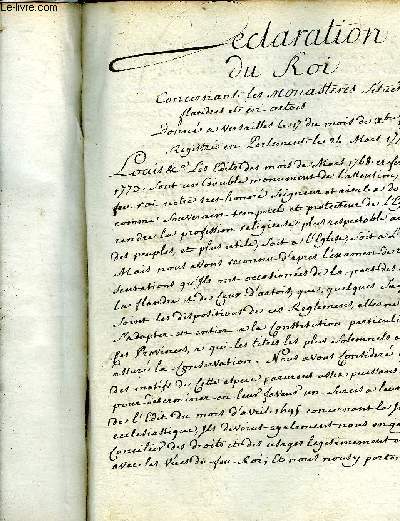 Le-livre.com
Declaration
du Roi
Concernant les Monasteres situés
flandres et en artois
Donné a Versailles le 17 du mois de
Registrée en Parlement le 24 Mars 17
Louis &ca Les Edits des mois de Mars 1768. et fev
1773. sont un double monument de l'attention
feu roi notre tres honoré Seigneur et aieul a do
comme Souverain temporels et protecteur de l'E
rendre la profession religieuse plus respectable a
des peuples, et plus utile, soit a l'Eglise, soit a l'
Mais nous avons reconnu d'apres l'examen des re
sentations qu'ils ont occasionées de la part des
la flandre et de ceux d'artois, que, quelques Sa
soient les dispositions de ces Reglemens, elles ne
s'adapter en entier a la Constitution particuli
ses Provinces, a qui les titres les plus solemnels
assure la Conservation. Nous avons Considéré
des motifs de cette espece parurent assez puissans
pour determiner en leur faveur un Surcis a
de l'Edit du mois d'avril 1695 concernant la Ju
ecclesiastique, Ils devront egalement nous enga
Concilier des droits et des usages legitimement
avec les Vues du feu Roi, Et nous nous y porton